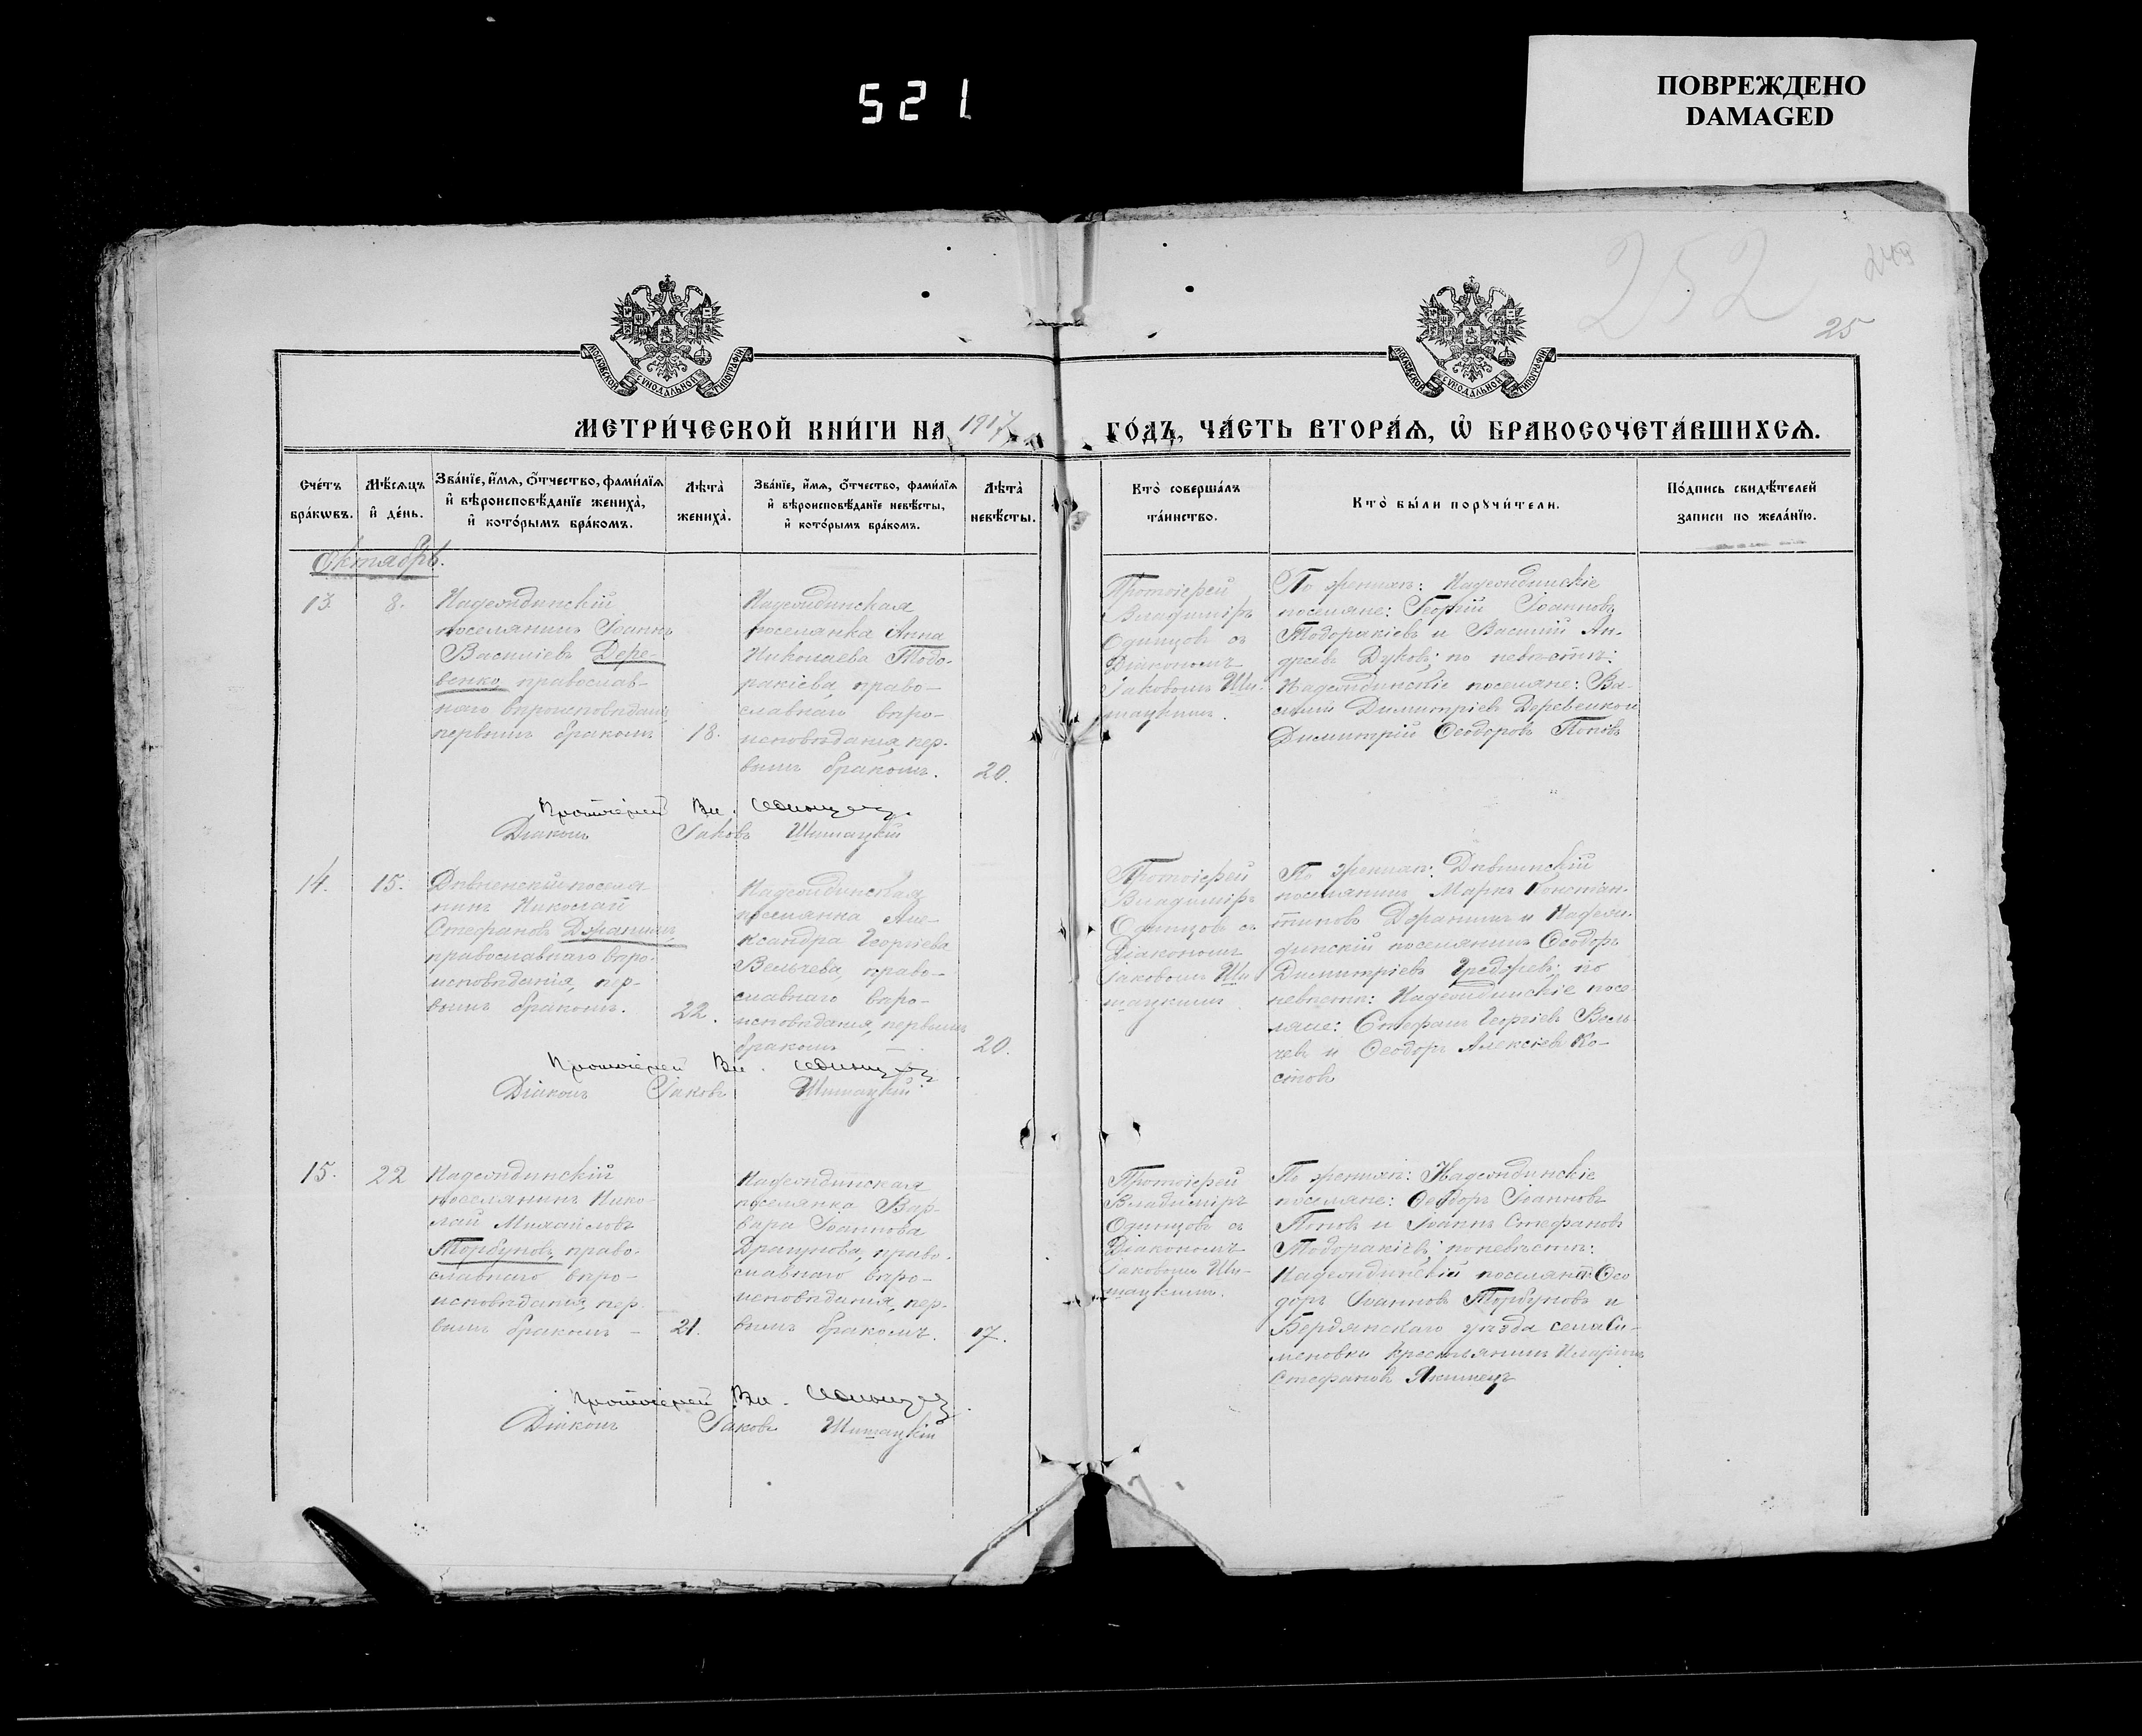 521
ПОВРЕЖДЕНО
DAMAGED
252
249
25
МОСКОВСКОЙ СѴНОДАЛЬНОЙ ТИПОГРАФІИ
МОСКОВСКОЙ СѴНОДАЛЬНОЙ ТИПОГРАФІИ
МЕТРИ́ЧЕСКОЙ КНИ́ГИ НА 1917
ГО́ДЪ, ЧА́СТЬ ВТОРА́Ѧ, Ѽ БРАКОСОЧЕТА́ВШИХСѦ.
Сче́тъ
бра́кѡвъ.
Мѣ́сѧцъ
и҆ де́нь.
Зва́нїе, и҆́мѧ, ѻ҆́тчество, фами́лїѧ
и҆ вѣроисповѣ́данїе жениха̀,
и҆ кото́рымъ бра́комъ.
Лѣ́та̀
жениха̀.
Зва́нїе, и҆́мѧ, ѻ҆́тчество, фами́лїѧ
и҆ вѣроисповѣ́данїе невѣ́сты,
и҆ кото́рымъ бра́комъ.
Лѣ́та̀
невѣ́сты.
Кто̀ соверша́лъ
та́инство.
Кто̀ бы́ли порꙋчи́тели.
По́дпись свидѣ́телей
записи по жела́нїю.
Октябрь.
13.
8.
Надеждинскій
поселянинъ Іоаннъ
Василіевъ Дере-
венко, православ-
наго вѣроисповѣданія,
первымъ бракомъ
18.
Надеждинская
поселянка Анна
Николаева Тодо-
ракіева, право-
славнаго вѣро-
исповѣданія, пер-
вымъ бракомъ.
20.
Протоіерей
Владиміръ
Одинцовъ съ
Діакономъ
Іаковомъ Ши-
шацкимъ.
По женихѣ: Надеждинскіе
поселяне: Георгій Іоанновъ
Тодоракіевъ и Василій Ан-
дреевъ Дуковъ; по невѣстѣ:
Надеждинскіе поселяне: Ва-
силій Димитріевъ Деревенко и
Димитрій Ѳеодоровъ Поповъ
Протоіерей Вл. Одинцовъ.
Діаконъ Іаковъ Шишацкій
14.
15.
Дивненскій поселя-
нинъ Николай
Стефановъ Држанинъ
православнаго вѣро-
исповѣданія, пер-
вымъ бракомъ.
22.
Надеждинская
поселянка Але-
ксандра Георгіева
Вельчева, право-
славнаго вѣро-
исповѣданія, первымъ
бракомъ
20.
Протоіерей
Владиміръ
Одинцовъ съ
Діакономъ
Іаковомъ Ши-
шацкимъ
По женихѣ: Дивнинскій
поселянинъ Маркъ Констан-
тиновъ и Надеж-
динскій поселянинъ Ѳеодоръ
Димитріевъ по
невѣстѣ: Надеждинскіе посе-
ляне: Стефанъ Георгіевъ Вель-
чевъ и Ѳеодоръ Алексіевъ Ко-
стовъ
Протоіерей Вл. Одинцовъ.
Діаконъ Іаковъ Шишацкій
15.
22
Надеждинскій
поселянинъ Нико-
лай Михайловъ
Торбуновъ, право-
славнаго вѣро-
исповѣданія, пер-
вымъ бракомъ
21.
Надеждинская
поселянка Вар-
вара Іоаннова
Драгунова, право-
славнаго вѣро-
исповѣданія, пер-
вымъ бракомъ.
17.
Протоіерей
Владиміръ
Одинцовъ съ
Діакономъ
Іаковомъ Ши-
шацкимъ.
По женихѣ: Надеждинскіе
поселяне: Ѳеодоръ Іоанновъ
Поповъ и Іоаннъ Стефановъ
Тодоракіевъ; по невѣстѣ:
Надеждинскій поселянинъ Ѳео-
доръ Іоанновъ Торбуновъ и
Бердянскаго уѣзда села Си-
меновки крестьянинъ Иларіонъ
Стефановъ Якимецъ
Протоіерей Вл. Одинцовъ.
Діаконъ Іаковъ Шишацкій